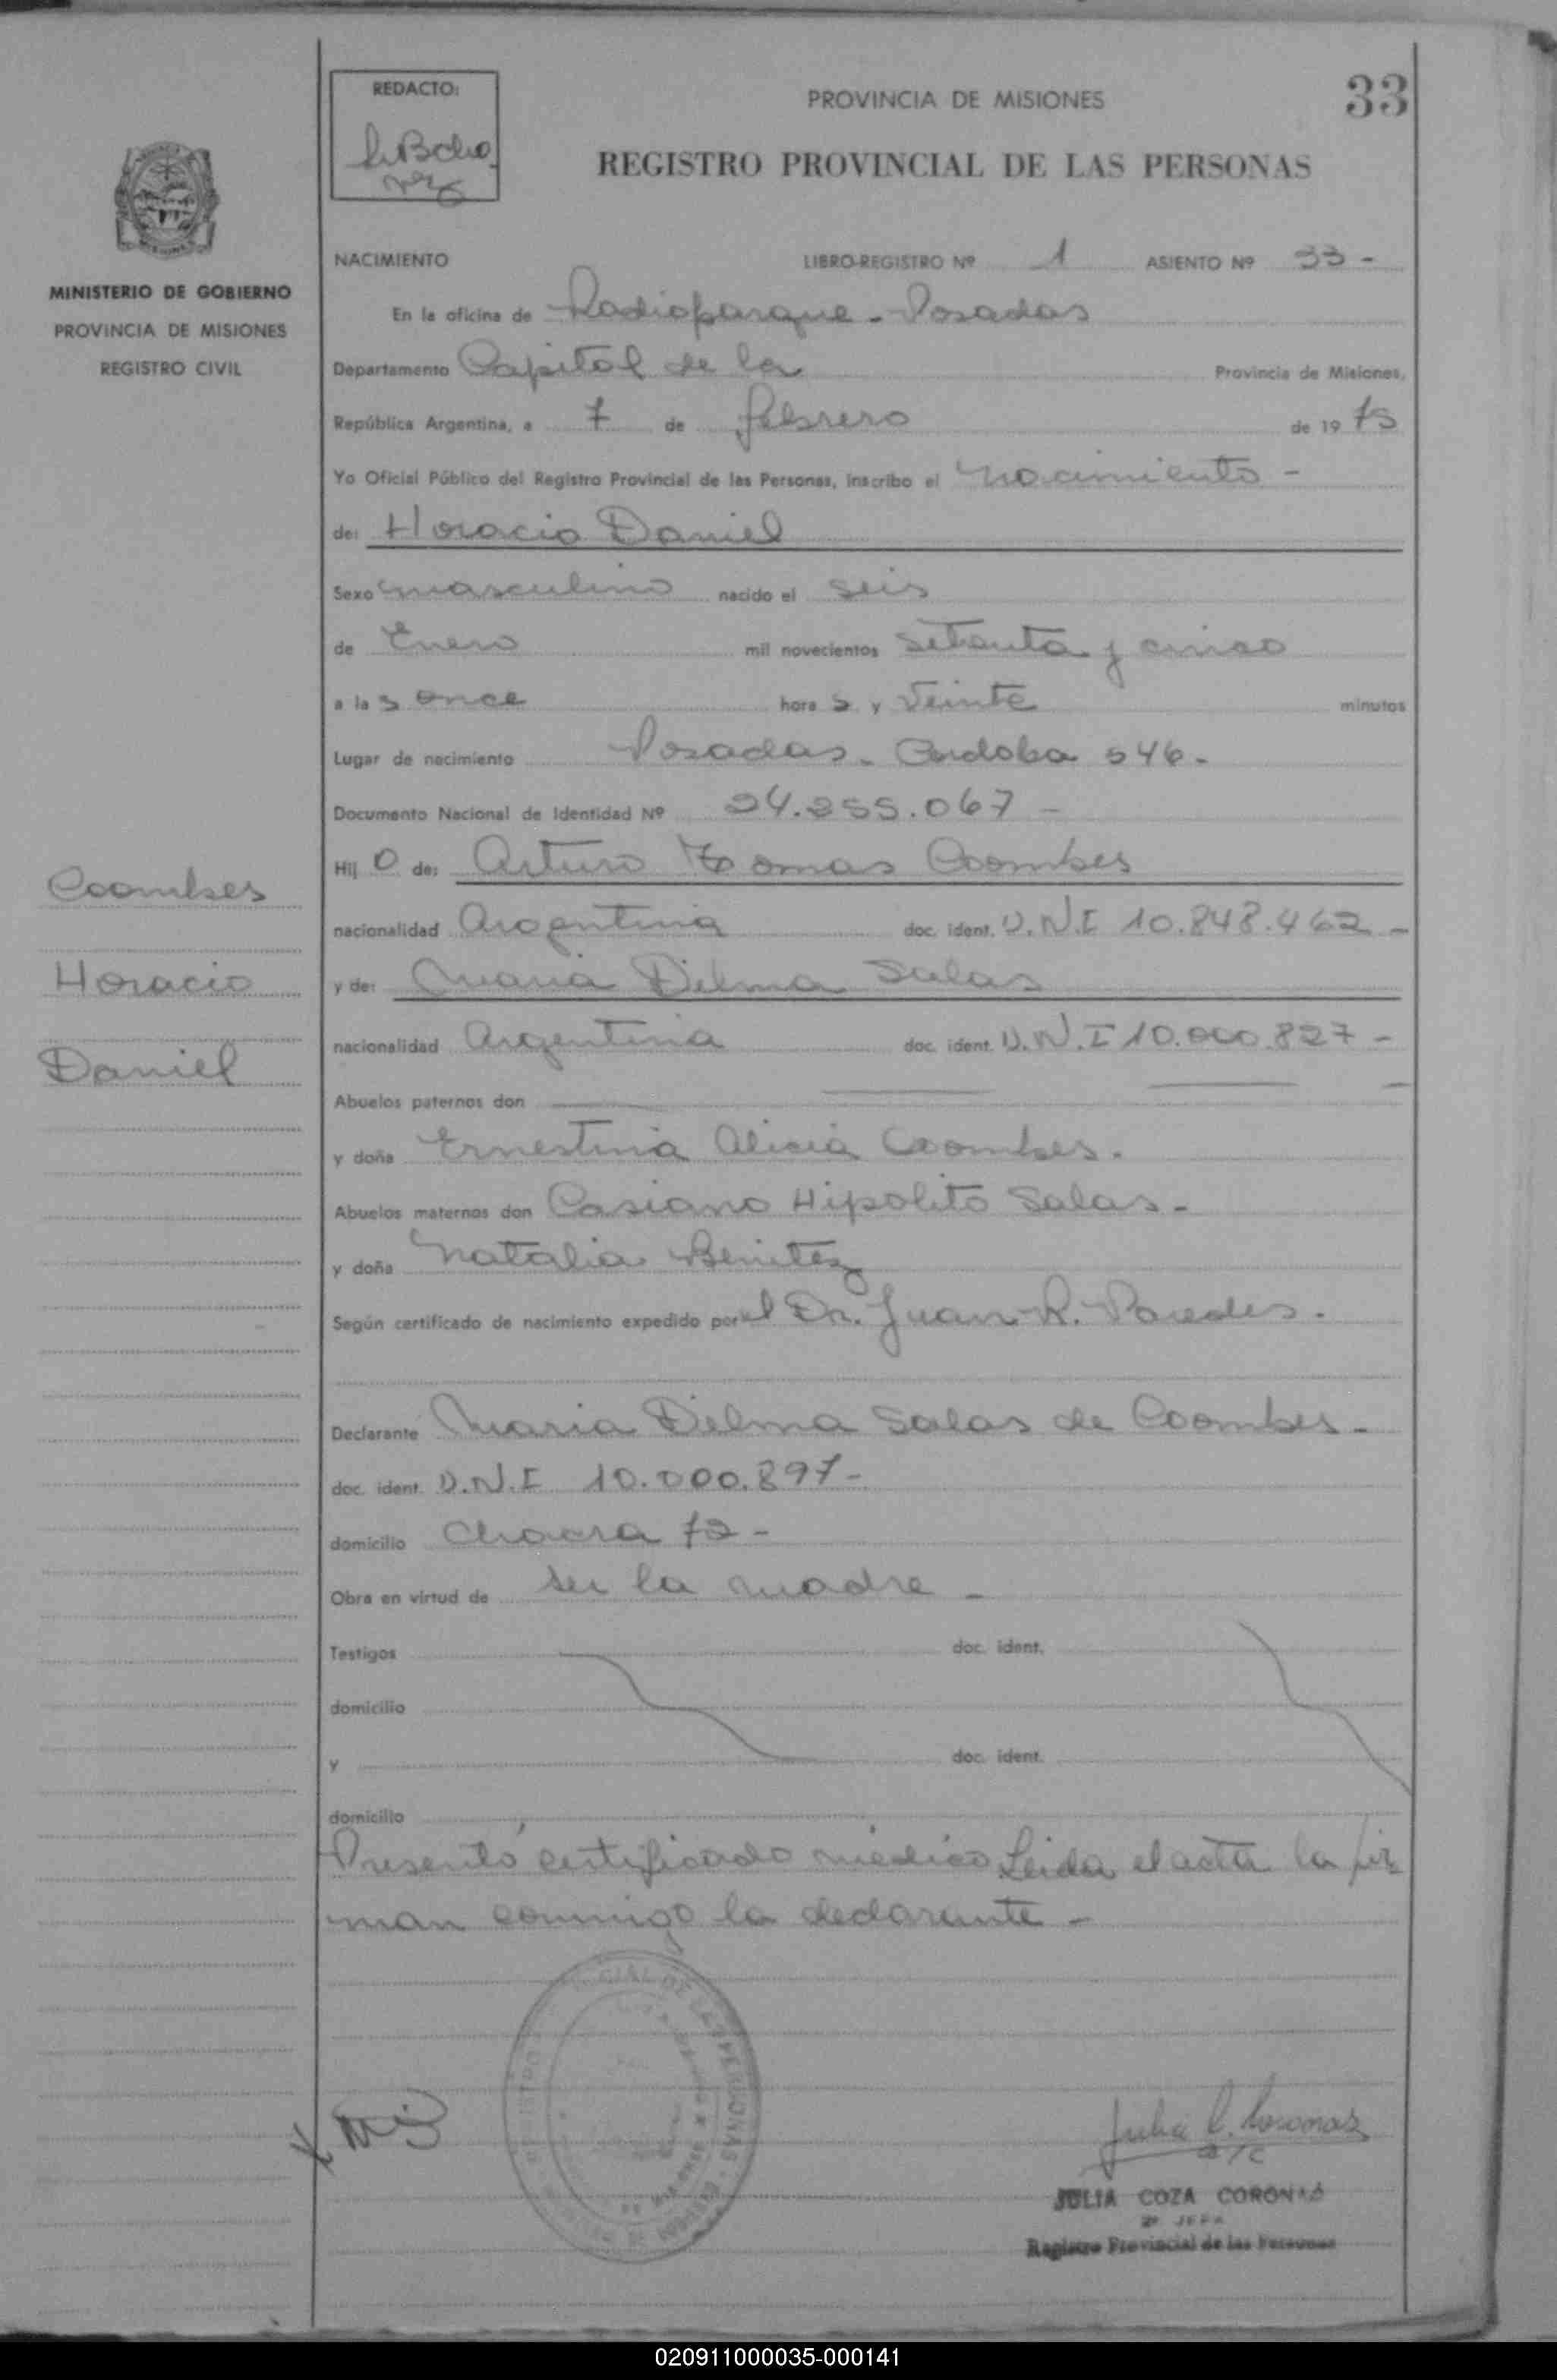 REDACTO:
PROVINCIA DE MISIONES
33
REGISTRO PROVINCIAL DE LAS PERSONAS
MINISTERIO DE GOBIERNO
PROVINCIA DE MISIONES
REGISTRO CIVIL
NACIMIENTO LIBRO-REGISTRO Nº 1 ASIENTO Nº 33 -
En la oficina de Radioparque - Posadas
Departamento Capital de la Provincia de Misiones,
República Argentina, a 7 de febrero de 1975
Yo Oficial Público del Registro Provincial de las Personas, inscribo el nacimiento -
de: Horacio Daniel
Sexo masculino nacido el seis
de Enero mil novecientos setenta y cinco
a las once horas y veinte minutos
Lugar de nacimiento Posadas - Cordoba 546 -
Documento Nacional de Identidad Nº 24.255.067 -
Hijo de: Arturo Tomas Coombes
nacionalidad Argentina doc. ident. D.N.I 10.848.462 -
y de: Maria Dilma Salas
nacionalidad Argentina doc. ident. D.N.I 10.000.827 -
Abuelos paternos don
y doña Ernestina Alicia Coombes.
Abuelos maternos don Casiano Hipolito Salas -
y doña Natalia Benitez
Según certificado de nacimiento expedido por el Dr. Juan R. Paredes.
Declarante Maria Delma Salas de Coombes -
doc. ident. D.N.I 10.000.897 -
domicilio Chacra 72 -
Obra en virtud de ser la madre -
Testigos doc. ident.
domicilio
y doc. ident.
domicilio
Presentó certificado médico Leida el acta la fir
man conmigo la declarante -
Coombes
Horacio
Daniel
Julia C. Coronas
a/c
JULIA COZA CORONAS
2º JEFA
Registro Provincial de las Personas
020911000035-000141